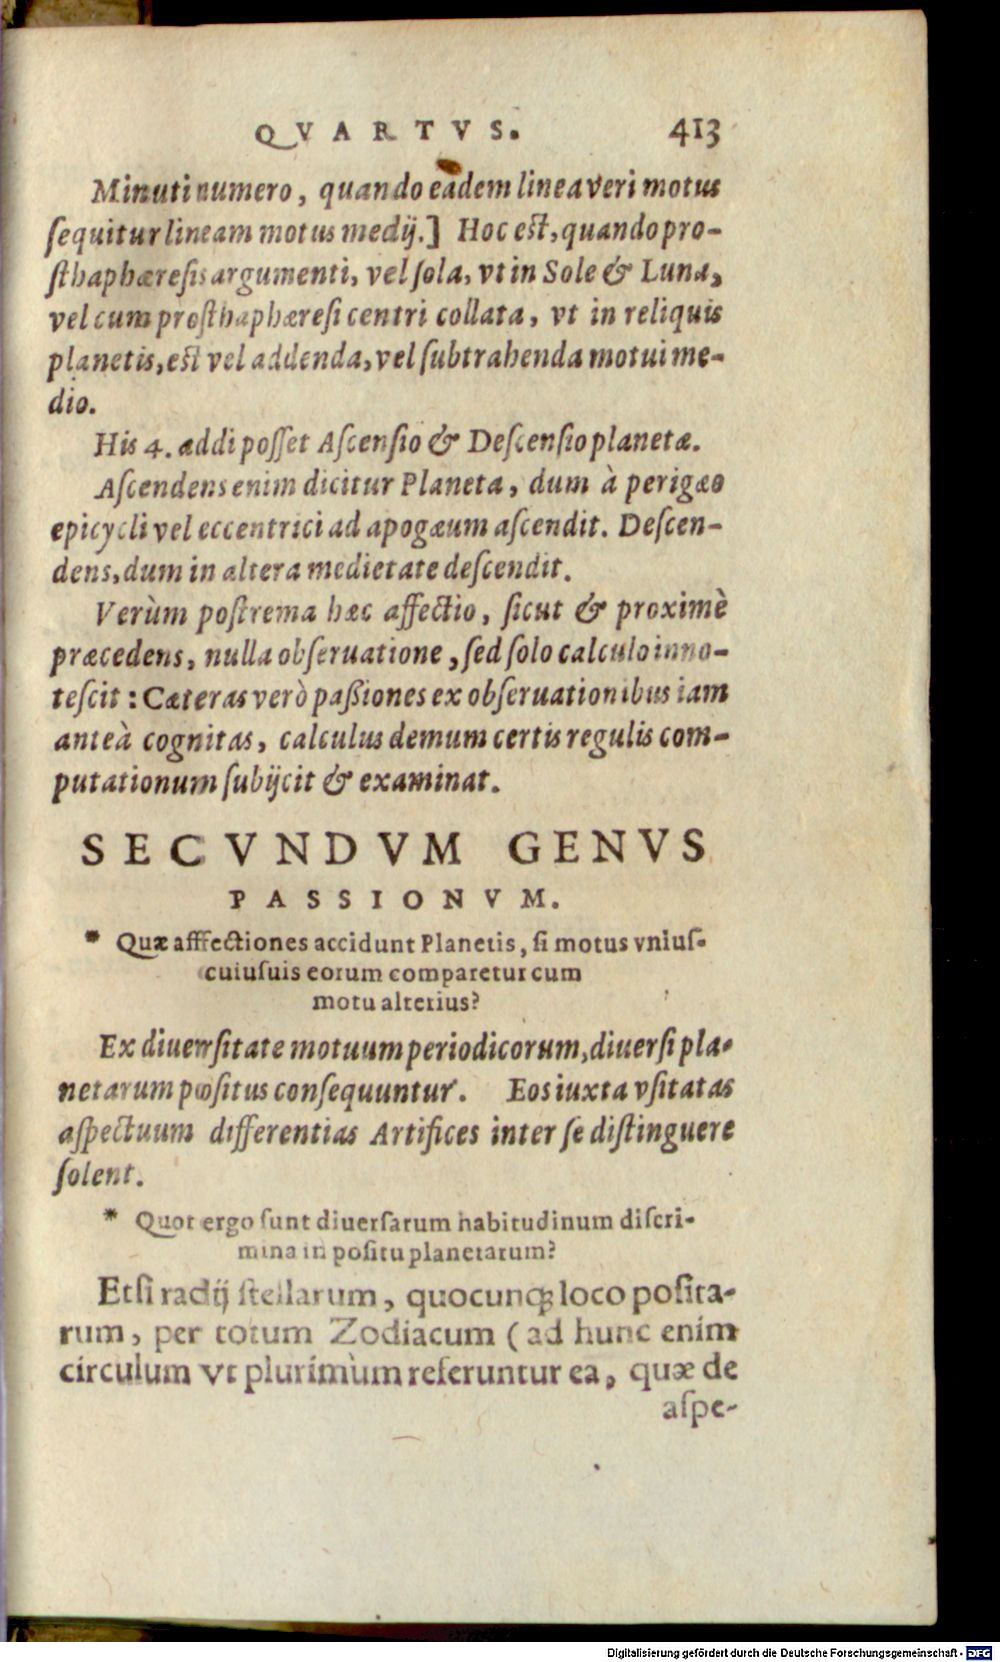 QVARTVS. 413
Minuti numero, quando eadem linea veri motus
ſequitur lineam motus medij.] Hoc est, quando pro-
ſthaphæreſis argumenti, vel ſola, vt in Sole & Luna,
vel cum proſthaphæreſi centri collata, vt in reliquis
planetis, est vel addenda, vel ſubtrahenda motui me-
dio.
His 4. addi poſſet Aſcenſio & Deſcenſio planetæ.
Aſcendens enim dicitur Planeta, dum à perigæo
epicycli vel eccentrici ad apogæum aſcendit. Deſcen-
dens, dum in altera medietate deſcendit.
Verùm poſtrema hæc affectio, ſicut & proximè
præcedens, nulla obſeruatione, ſed ſolo calculo inno-
teſcit: Cæteras verò paßiones ex obſeruationibus iam
anteà cognitas, calculus demum certis regulis com-
putationum ſubijcit & examinat.
SECVNDVM GENVS
PASSIONVM.
* Quæ afffectiones accidunt Planetis, ſi motus vniuſ-
cuiuſuis eorum comparetur cum
motu alterius?
Ex diuerrſitate motuum periodicorum, diuerſi pla-
netarum poſitus conſequuntur. Eos iuxta vſitatas
aſpectuum differentias Artifices inter ſe diſtinguere
ſolent.
* Quot ergo ſunt diuerſarum habitudinum diſcri-
mina in poſitu planetarum?
Etſi radij ſtellarum, quocunq́ꝫ loco poſita-
rum, per totum Zodiacum (ad hunc enim
circulum vt plurimùm referuntur ea, quæ de
aſpe-
Digitalisierung gefördert durch die Deutsche Forschungsgemeinschaft - DFG